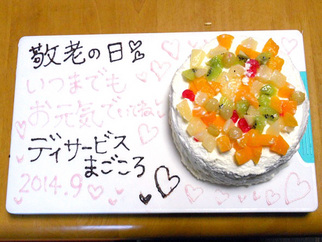 敬老の日
いつまでも
お元気でいてね
デイサービス
まごころ
2014.9